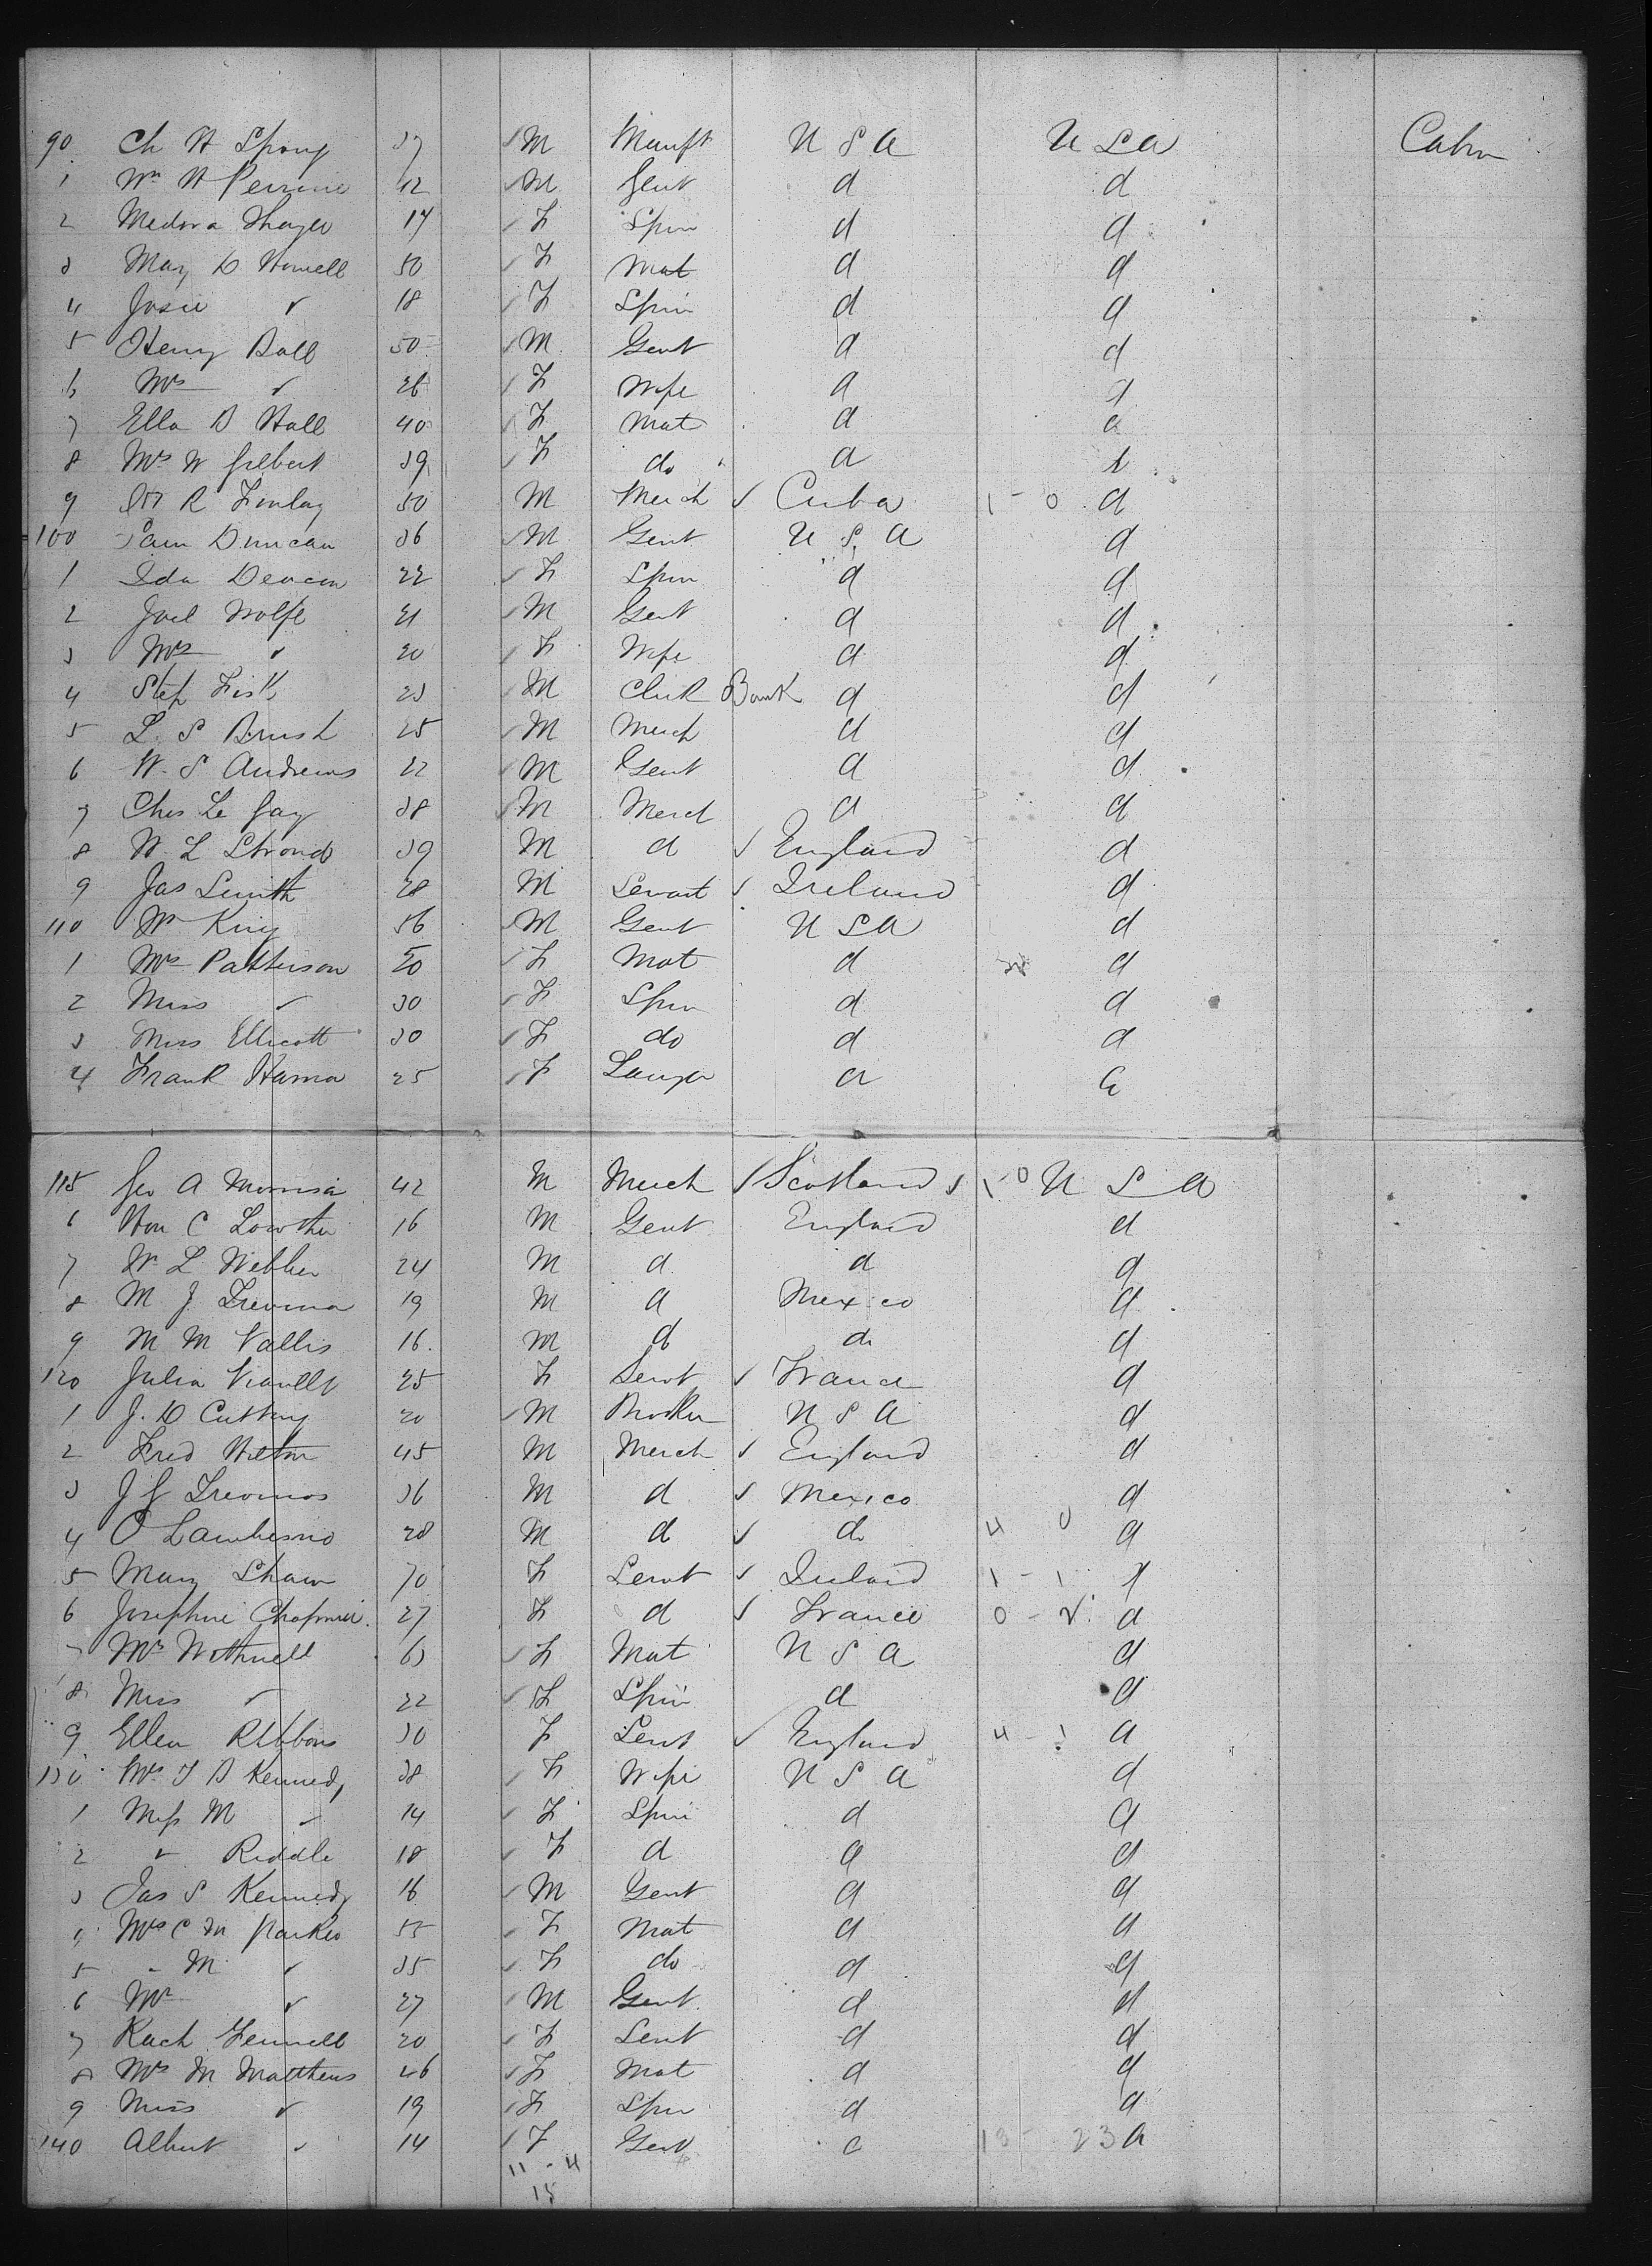 90 Ch H Spong 37 M Manft U S A U S A Cabin
1 Wm H Perrine 42 M Gent d d
2 Medora Thayer 17 F Spin d d
3 Mary D Howell 50 F Mat d d
4 Josie " 18 F Spin d d
5 Henry Ball 50 M Gent d d
6 Mrs " 26 F Wife d d
7 Ella B Hall 40 F Mat d d
8 Mrs W Gilbert 39 F do d d
9 R Finlay 50 M Merch Cuba 1 - 0 d
100 Sam Duncan 36 M Gent U S A d
1 Ida Deacon 22 F Spin d d
2 Joel Wolfe 21 M Gent d d
3 Mrs " 20 F Wife d d
4 Step Fisk 23 M Clerk Bank d d
5 L. S Brush 25 M Merch d d
6 W. S Andrews 22 M Gent d d
7 Chas Le Gay 38 M Merch d d
8 W. L Strond 39 M d England d
9 Jas Smith 28 M Servant Ireland d
110 Wm King 56 M Gent U S A d
1 Mrs Patterson 50 F Mat d d
2 Miss " 30 F Spin d d
3 Miss Ellicott 30 F do d d
4 Frank Hanna 25 F Lawyer d d
115 Geo A Morrison 42 M Merch Scotland 1 - 0 U S A
6 Hon C Lowther 16 M Gent England d
7 W L Webber 24 M d d d
8 M J Trevina 19 M d Mexico d
9 M M Vallis 16 M d do d
120 Julia 25 F Servt France d
1 J. D Cutting 20 M Broker U S A d
2 Fred Wilton 45 M Merch England d
3 J G Trevinos 36 M d Mexico d
4 O 28 M d do 4 0 d
5 Mary Shaw 70 F Servt Ireland 1 - 1 d
6 Josephine 27 F d France 0 - 2 d
7 Mrs Wothnell 63 F Mat U S A d
8 Miss " 22 F Spin d d
9 Ellen Ribbons 30 F Servt England 4 - 1 d
130 Mrs T B Kennedy 38 F Wife U S A d
1 Miss M " 14 F Spin d d
2 " Riddle 18 F d d d
3 Jas S Kennedy 16 M Gent d d
4 Mrs C M Parker 55 F Mat d d
5 " M " 35 F do d d
6 Mr " 27 M Gent d d
7 Rach Fennell 20 F Servt d d
8 Mrs M Matthews 46 F Mat d d
9 Miss " 19 F Spin d d
140 Albert " 14 F Gent d 13 - 23 d
11 - 4
15